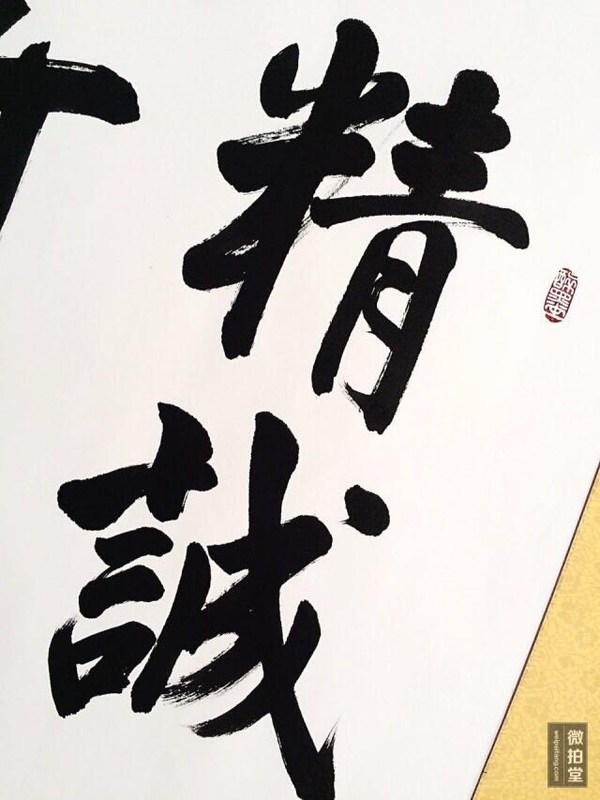 精誠
微拍堂
weipaitang.com